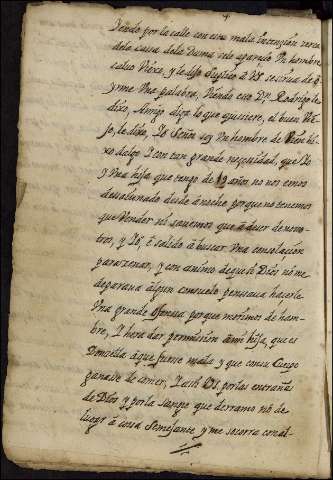 Yendo por la calle con esta mala Intencion cerca
dela cassa dela Dama sele aparecio Un hombre
calvo Viexo, y le dijo Suplico a Vs se sirva de o
yrme Una palabra, Viendo esto Dn Rodrigo le
dixo, Amigo diga lo que quisiere, el buen Vie
Jo, le dixo, Yo Señor soy Un hombre de Bien hi
xo dalgo Y con tan grande necesidad, que Yo
y Una hija que tengo de 19 años no nos emos
desaiunado desde anoche porque no tenemos
que Vender ni savemos que a de ser de noso
tros, y Yó, é salido á buscar Una consolacion
para zenar, y con animo de que si Dios no me
deparava algun consuelo penssava hacerle
Una grande ofenssa porque morimos de ham
bre, Y hera dar permission á mi hija, que es
Donzella á que fuesse mala y que con su Cuerpo
ganase de comer, Y assi Vs. por las entrañas
de Dios y por la sangre que derramo no de
lugar á cossa Semejante y me socorra con al-